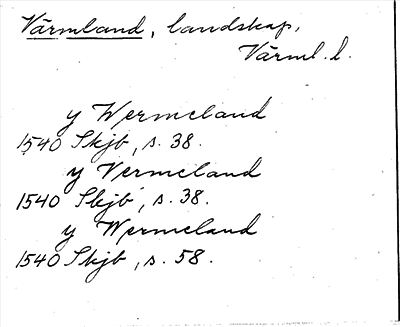 Värmland, landskap,
Värml. l.
y Wermeland
1540 Skjb, s. 38.
y Vermeland
1540 Skjb, s. 38.
y Wermeland
1540 Skjb, s. 58.